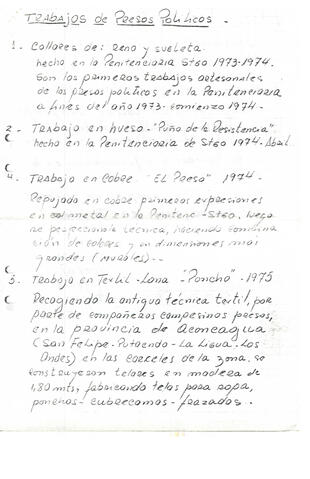 TRABAJOS de PRESOS POLITICOS.
1- Collares de: Reno y sueleta.
hecho en la Penitenciaria Stgo 1973-1974.
Son los primeros trabajos artesanales
de los presos politicos en la Penitenciaria
a fines del año 1973- comienzo 1974-
2- TRABAJO en hueso- "Puño de la Resistencia"
hecho en la Penitenciaria de Stgo 1974- Abril
4- TRABAJO en Cobre "EL Preso" 1974-
Repujado en cobre primeras expresiones
en este metal en la Penitenc- Stgo, luego
se perfecciona técnica, haciendo combina
ción de colores y en dimensiones más
grandes (murales)--
5- TRABAJO en Textil- Lana "Poncho" - 1975
Recogiendo la antigua técnica textil, por
parte de compañeros campesinos presos,
en la provincia de Aconcagua
(San Felipe- Putaendo- La Ligua- Los
Andes) en las carceles de la zona. se
construyeron telares en madera de
1,80 mts, fabricando telas para ropa,
ponchos- cubrecamas- frazadas.